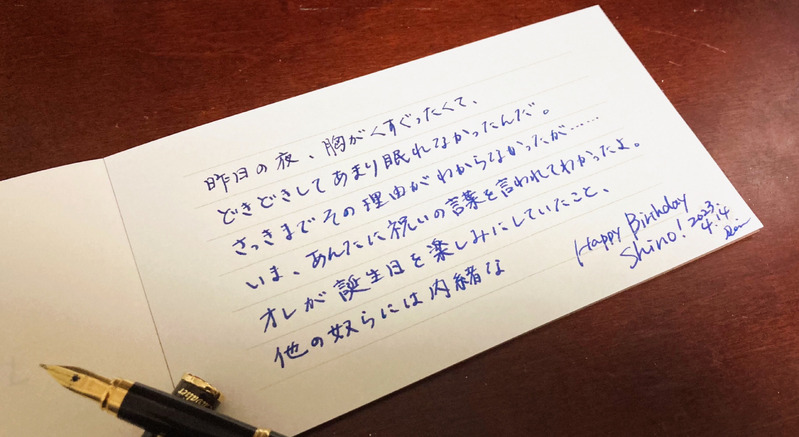 昨日の夜、胸がくすぐったくて、
どきどきしてあまり眠れなかったんだ。
さっきまでその理由がわからなかったが……
いま、あんたに祝いの言葉を言われてわかったよ。
オレが誕生日を楽しみにしていたこと、
他の奴らには内緒な
Happy Birthday
Shino! 2023.
4.14